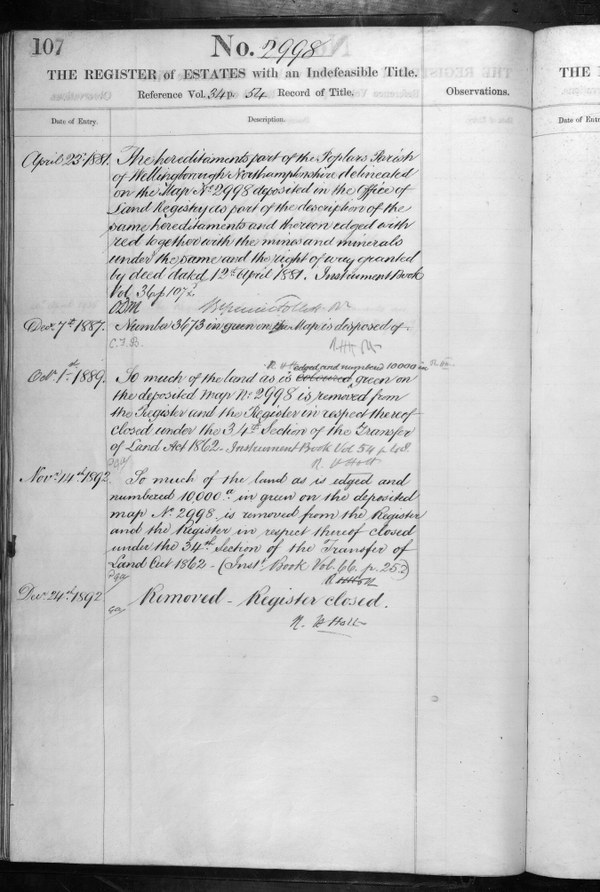 107
No. 2998
THE REGISTER of ESTATES with an Indefeasible Title.
Reference Vol. 34 p. 54 Record of Title.
Observations.
Date of Entry.
Description.
April 23d 1881. The hereditaments part of the Poplars Parish
of Wellingborough Northamptonshire delineated
on the Map No 2998 deposited in the Office of
Land Registry as part of the description of the
same hereditaments and thereon edged with
red together with the mines and minerals
under the same and the right of way granted
by deed dated 12th April 1881. Instrument Book
Vol. 36 p. 107
Decr. 7th 1887. Number 3673 in green on the Map is disposed of
C.F.B.
edged and numbered 10000 in
Octr. 1st 1889. So much of the land as is coloured green on
the deposited map No 2998 is removed from
the Register and the Register in respect thereof
closed under the 34th Section of the Transfer
of Land Act 1862. Instrument Book Vol 54 p.
R. H Holt
Novr. 14th 1892. So much of the land as is edged and
numbered 10,000a in green on the deposited
map No 2998 is removed from the Register
and the Register in respect thereof closed
under the 34th Section of the Transfer of
Land Act 1862 - (Inst. Book Vol. 66. p. 25.)
R H Holt
Decr. 24th 1892 Removed - Register closed.
R. H Holt
THE
Date of Entry.